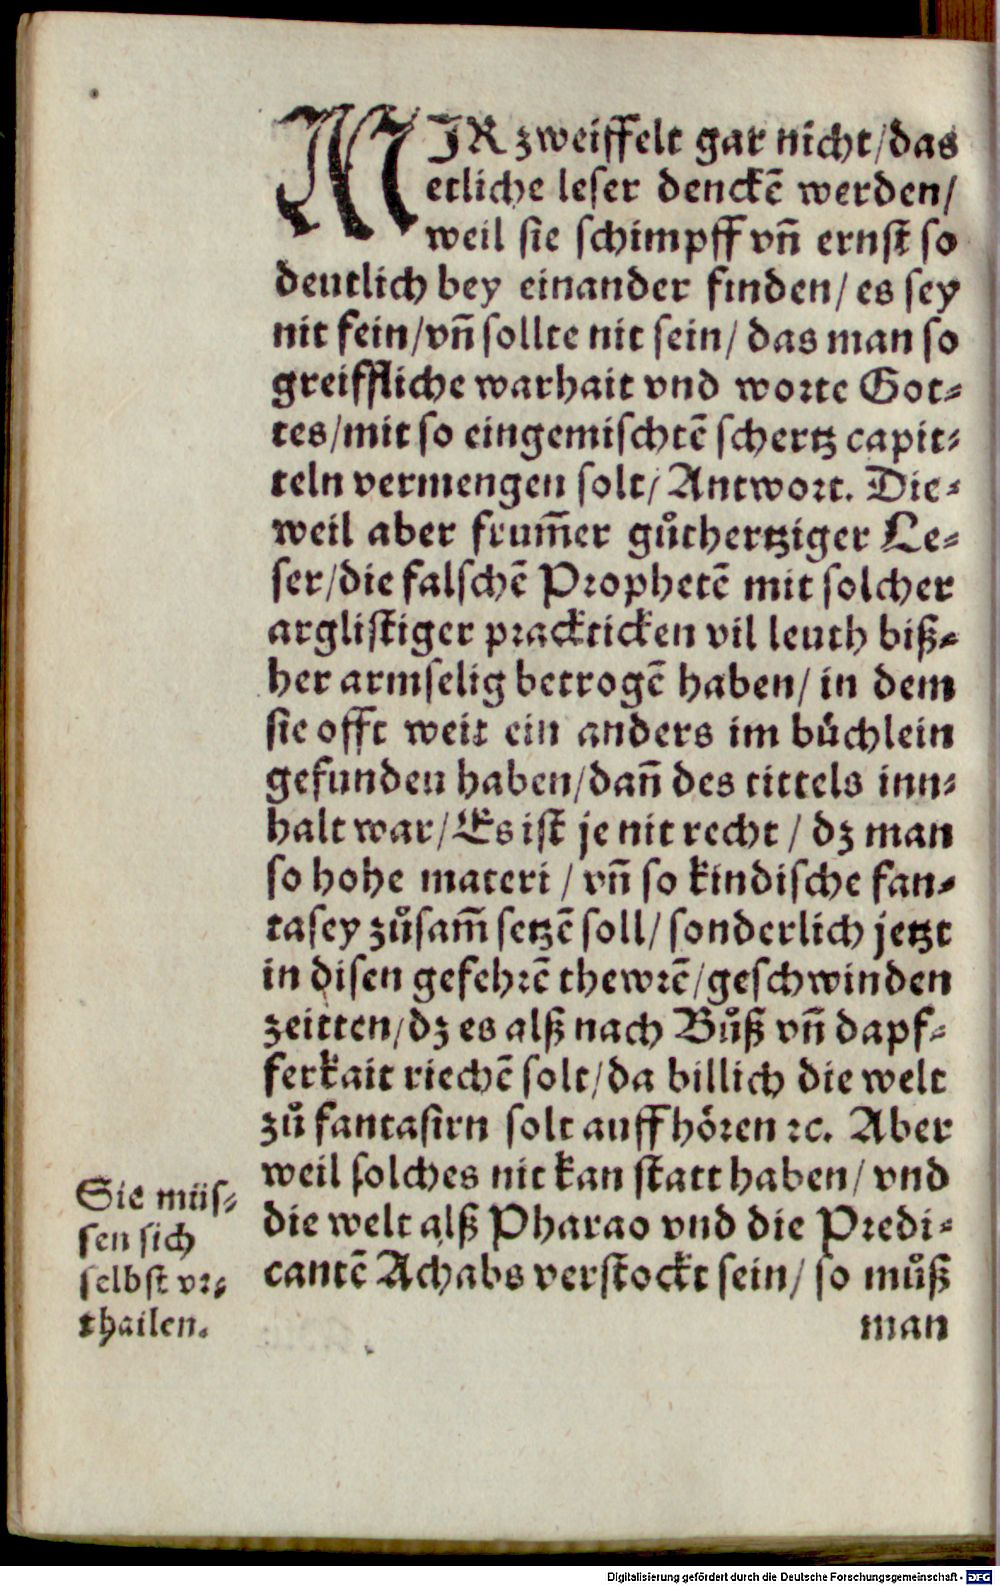 MIR zweiffelt gar nicht/das
etliche leser denckē werden/
weil sie schimpff vn̄ ernst so
deutlich bey einander finden/ es sey
nit fein/vn̄ sollte nit sein/ das man so
greiffliche warhait vnd worte Got⸗
tes/mit so eingemischtē schertz capit⸗
teln vermengen solt/ Antwort. Die⸗
weil aber frum̄er gůthertziger Le⸗
ser/die falschē Prophetē mit solcher
arglistiger prackticken vil leuth biß⸗
her armselig betrogē haben/ in dem
sie offt weit ein anders im bůchlein
gefunden haben/dan̄ des tittels inn⸗
halt war/Es ist je nit recht / dz man
so hohe materi / vn̄ so kindische fan⸗
tasey zůsam̄ setzē soll/ sonderlich jetzt
in disen gefehrē thewrē/geschwinden
zeitten/dz es alß nach Bůß vn̄ dapf⸗
ferkait riechē solt/da billich die welt
zů fantasirn solt auff hören ꝛc. Aber
weil solches nit kan statt haben/ vnd
die welt alß Pharao vnd die Predi⸗
cantē Achabs verstockt sein/ so můß
man
Sie müs⸗
sen sich
selbst vr⸗
thailen.
Digitalisierung gefördert durch die Deutsche Forschungsgemeinschaft - DFG